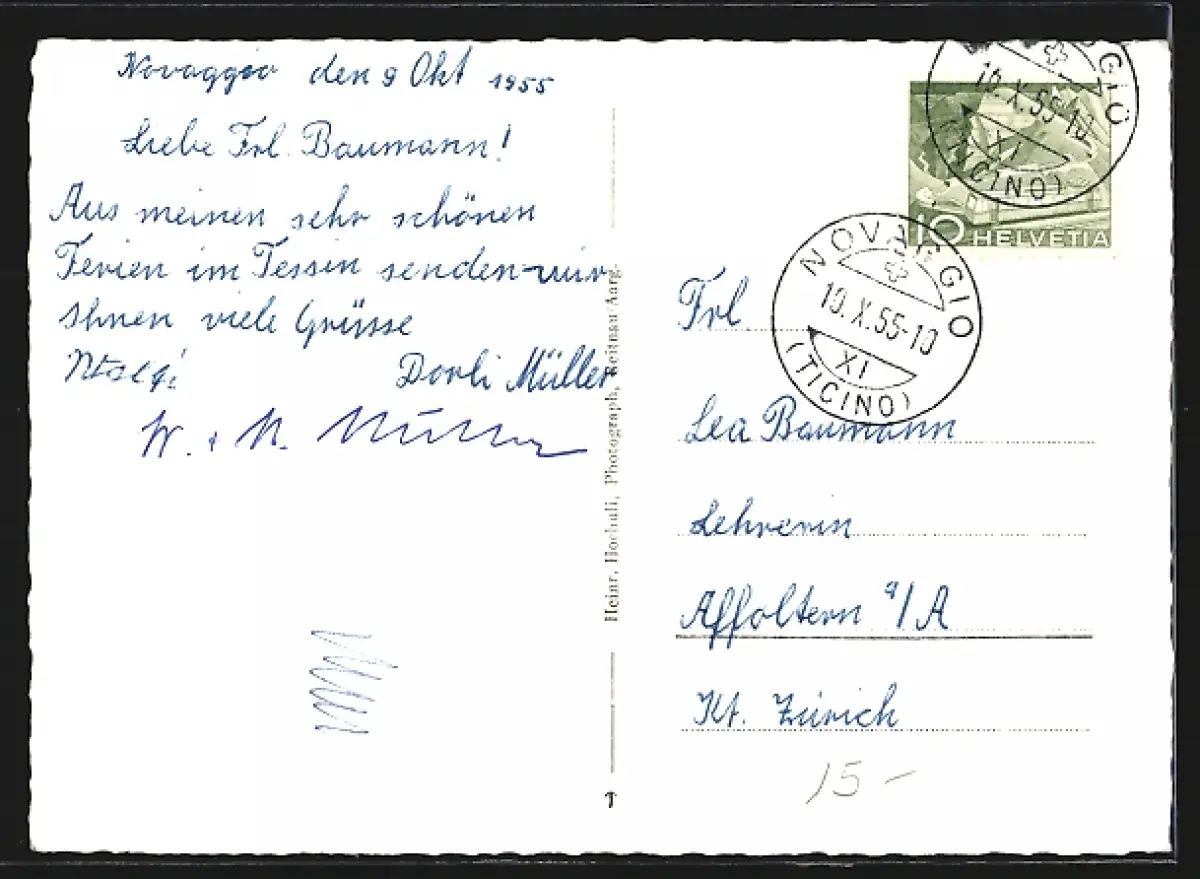 Novaggio den 9 Okt 1955
Liebe Frl. Baumann!
Aus meinen sehr schönen
Ferien im Tessin senden wir
Ihnen viele Grüsse
Dorli Müller
W. + M. Müller
Heinr. Hochuli, Photograph, Reitnau/Aarg.
NOVAGGIO
10.X.55-10
XI
(TICINO)
10 HELVETIA
NOVAGGIO
10.X.55-10
XI
(TICINO)
Frl
Lea Baumann
Lehrerin
Affoltern a/A
Kt. Zürich
15 –